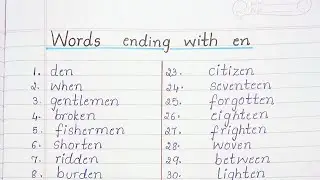 Words ending with en
1. den
2. when
3. gentlemen
4. broken
5. fishermen
6. shorten
7. ridden
8. burden
23. citizen
24. seventeen
25. forgotten
26. eighteen
27. frighten
28. woven
29. between
30. lighten